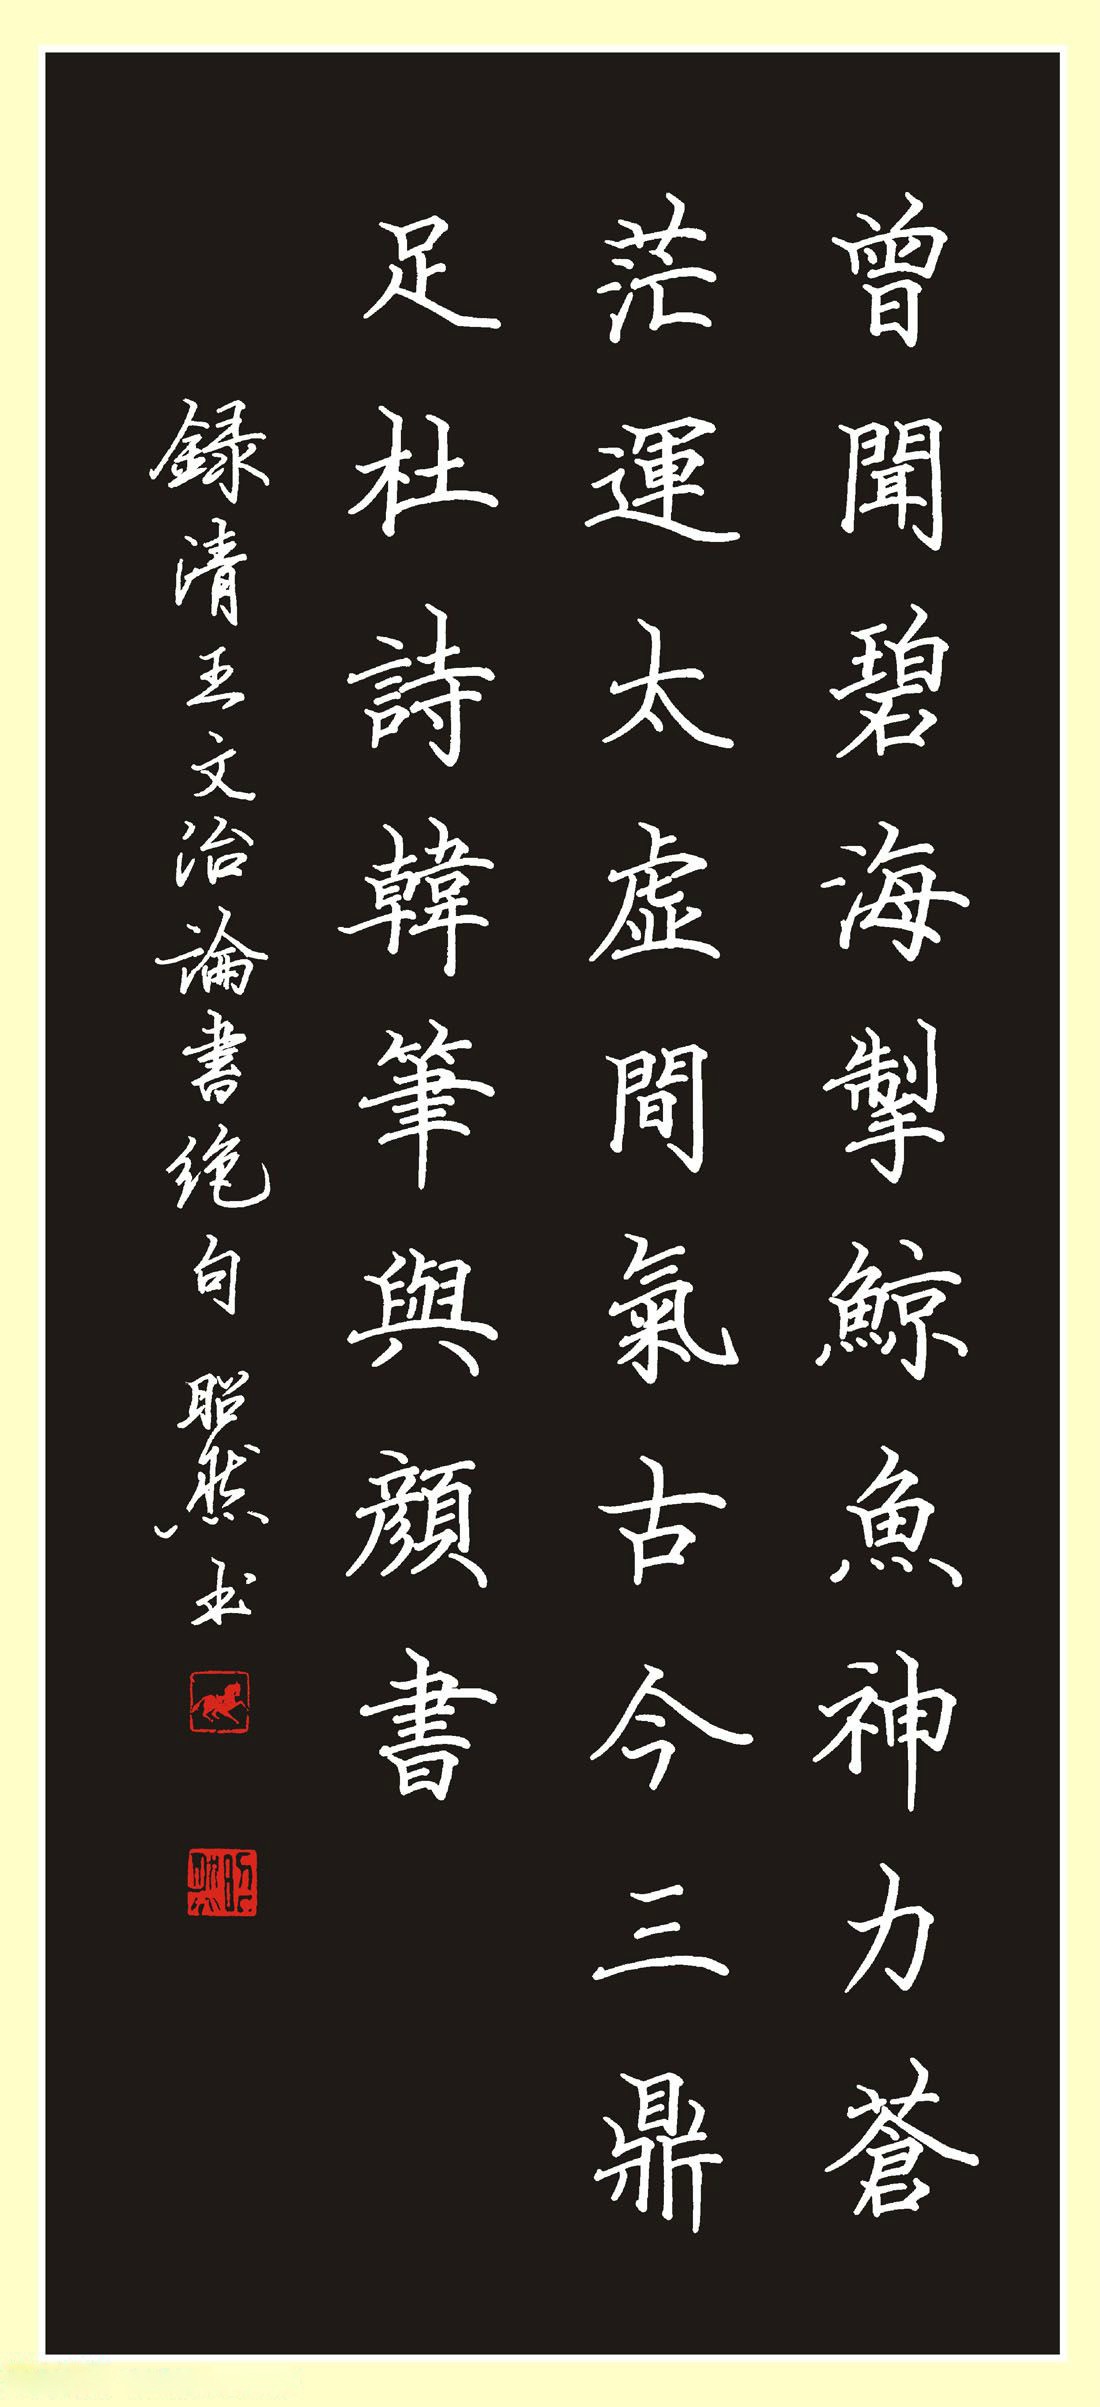 曾聞碧海掣鯨魚神力蒼
茫運太虛間氣古今三鼎
足杜詩韓筆與顔書
録清王文治論書絶句 昭然书
昭然